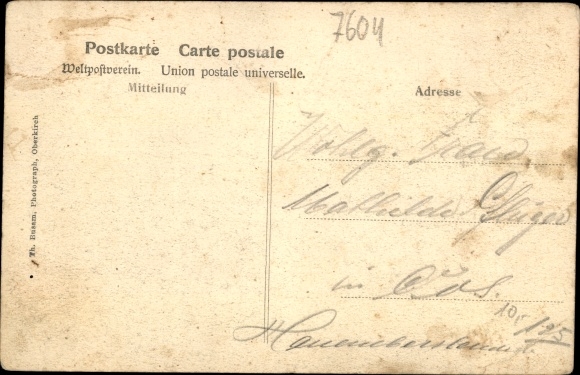 7604
Postkarte Carte postale
Weltpostverein. Union postale universelle.
Mitteilung
Adresse
Wohlg. Frau
Mathilde
in Oos.
10,- 125
Th. Busam, Photograph, Oberkirch